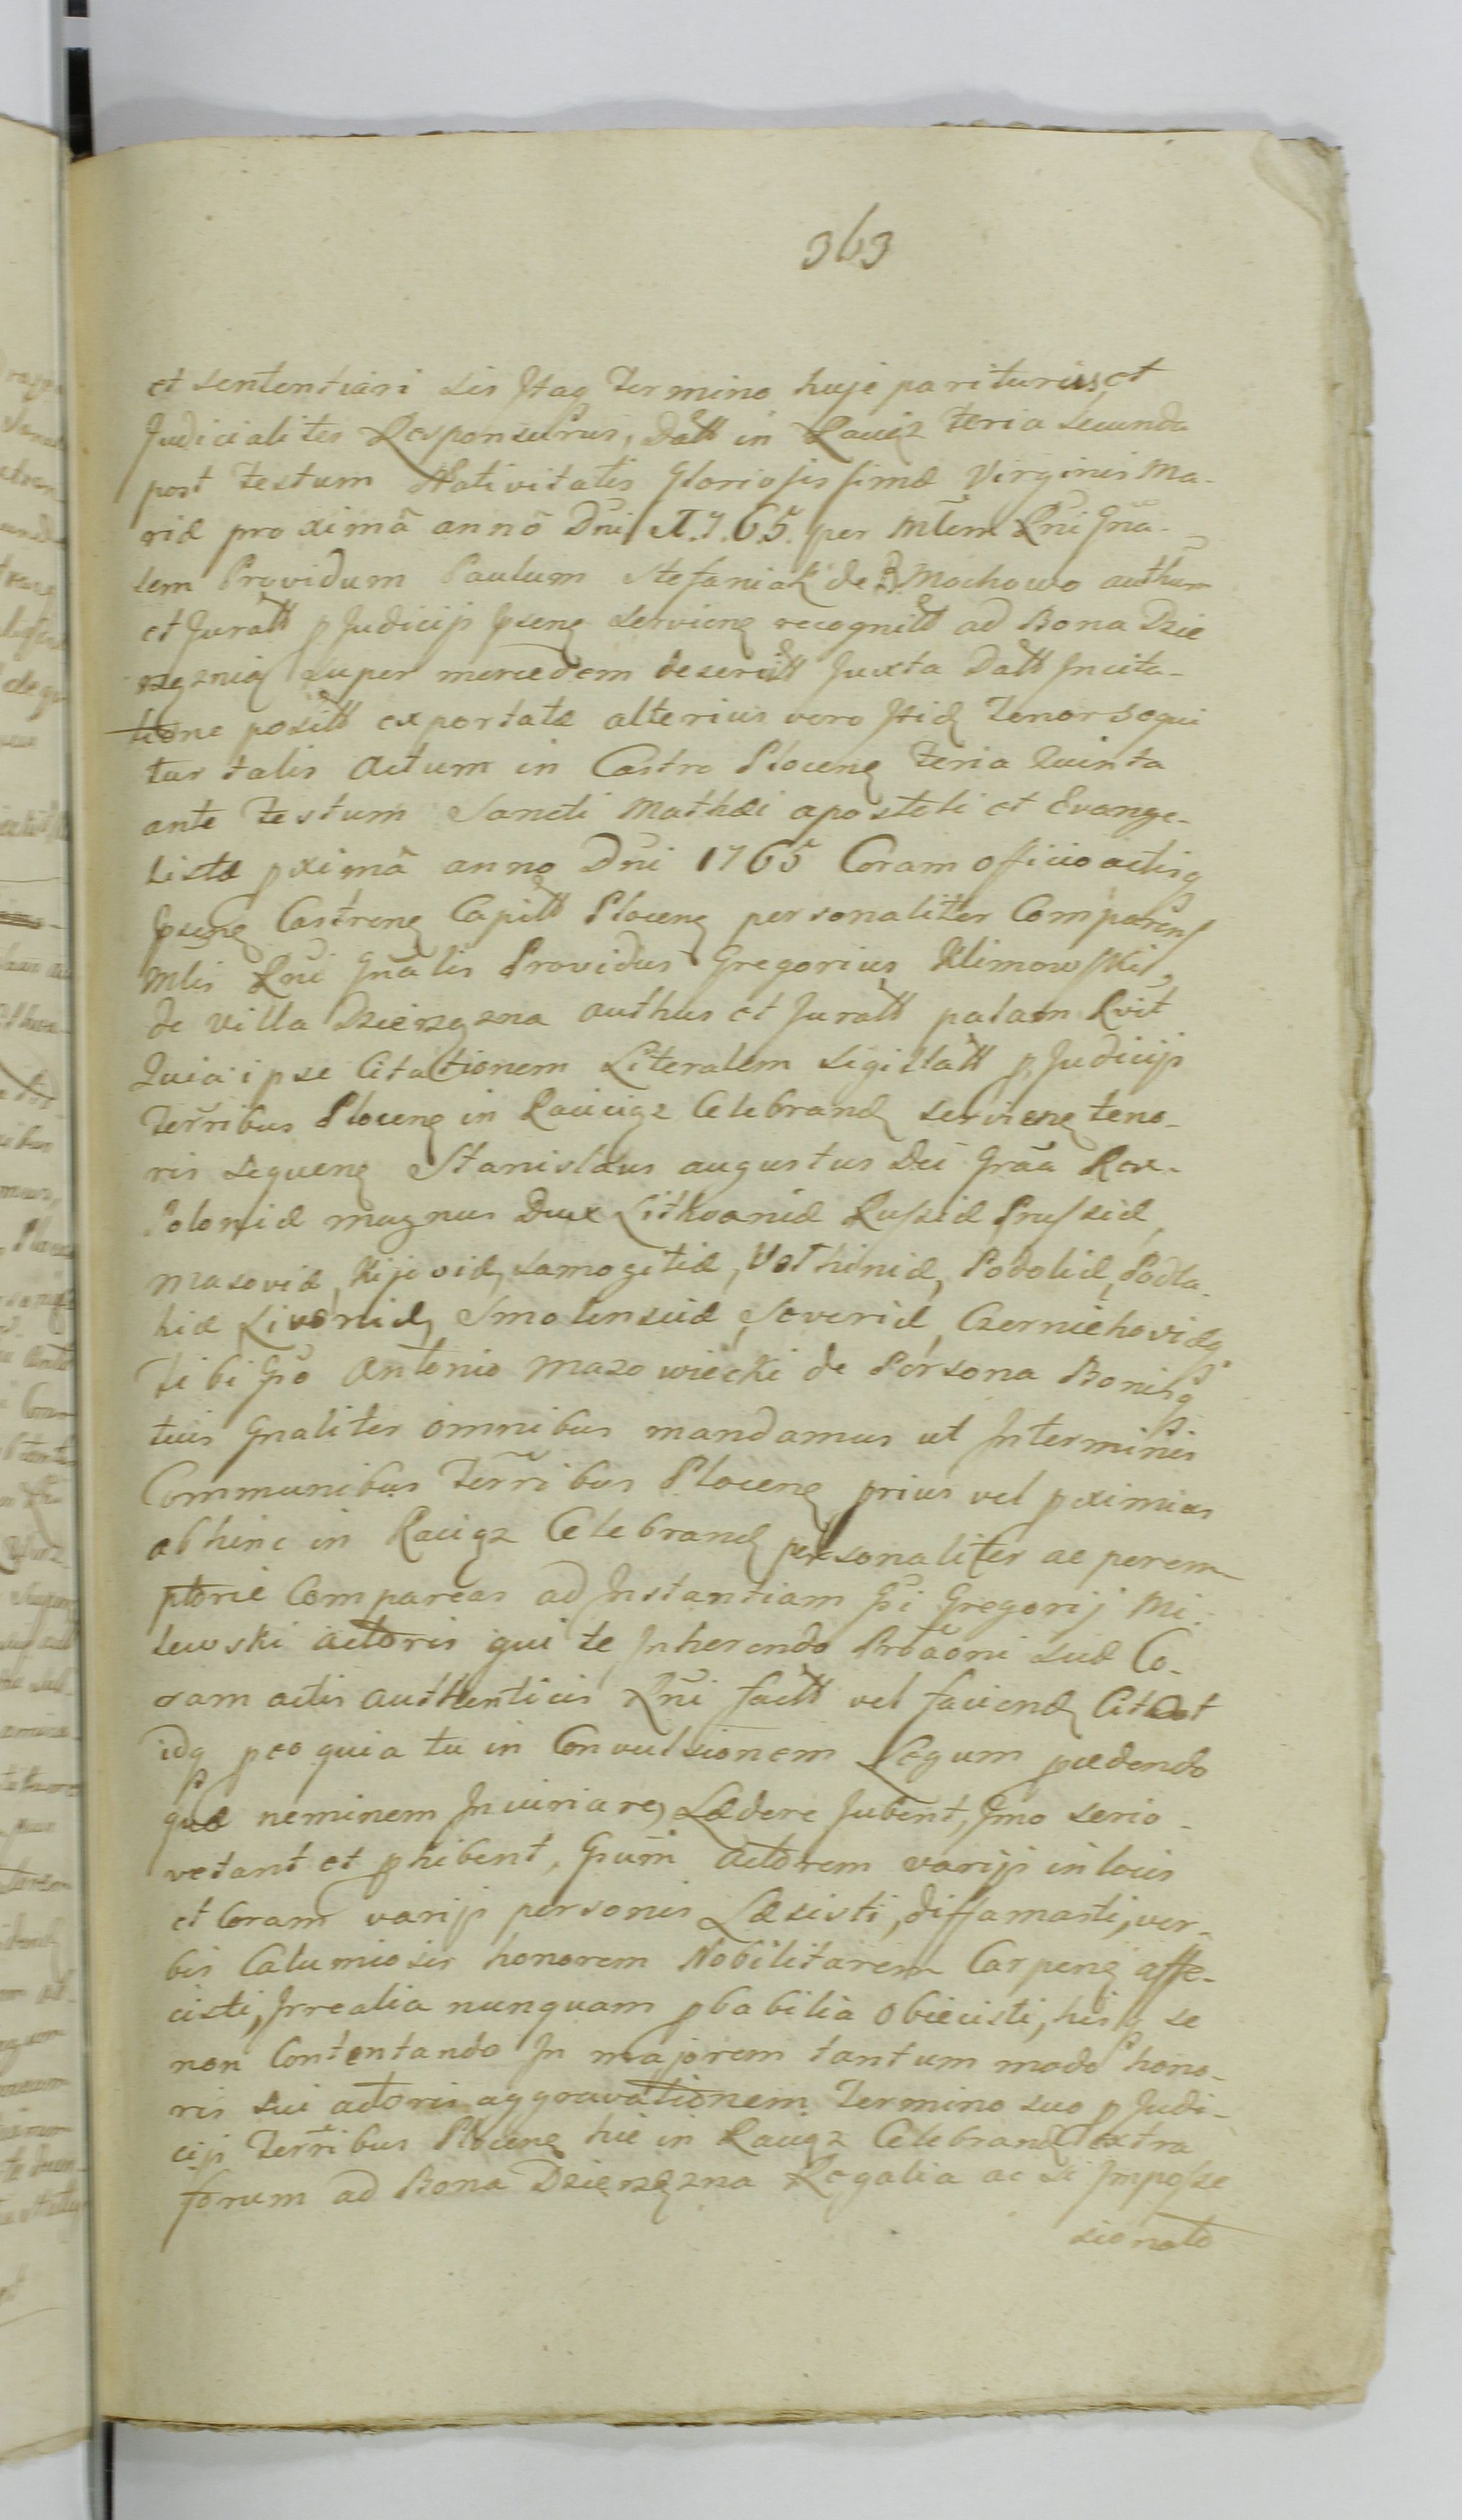 363
et sententiari sis Itaq termino huje pariturus, et
Judicialiter Responsurus, Datt in Raciąz feria secunda
post festum Nativitatis Gloriosissimæ Virginis Ma-
riæ proximâ annô Dñi 1765. per Mlem Rñi Gña-
lem Providum Paulum Stefaniak de Mochowo authum
et Juratt p Judicijs Ipseng servieng recognitt ad Bona Dzie
rzęznia super mercedem deseruitt Juxta Datt Incita-
tione positt exportatæ alterius vero Itid tenor sequi
tur talis Actum in Castro Ploceng feria Quinta
ante festum Sancti Mathæi apostoli et Evange-
listæ pximâ anno Dñi 1765 Coram officio actisq
Ipseng Castreng Capitt Ploceng personaliter Comparens
Mlis Rñi Gñalis Providus Gregorius Klimowski,
de villa Dzierzęzna authus et Juratt palam Rvit
Quia ipse Citationem Literalem sigillatt p Judicijs
Terribus Ploceng in Raciąz Celebrand servieng teno-
ris sequeng Stanislaus augustus Dei Grãa Rex-
Poloniæ magnus Dux Lithvaniæ Russiæ Prussiæ,
Masoviæ, Kijoviæ, Samogitiæ, Volhiniæ, Podoliæ, Podla-
hiæ Livoniæ, Smolensciæ, Severiæ, Czerniehoviæq
Tibi Gso Antonio Mazowiecki de Persona Bonisq
tuis Gnaliter omnibus mandamus ut In terminis
Communibus Terribus Ploceng prius vel pximius
abhinc in Raciąz Celebrand personaliter ac perem
ptorie Compareas ad Instantiam Gsi Gregorij Mi-
lewski actoris qui te Inherendo Proãoni suæ Co-
ram actis authenticis Rñi factt vel faciend Citat
idq peo quia tu in Convulsionem Legum pcedendo
quæ neminem Iniuriare, Lædere Jubent, Imo serio-
vetant et phibent, Gsum actorem varijs in locis
et Coram varijs personis Læsisti, diffamasti, ver-
bis Calumiosis honorem Nobilitarem Carpeng affe-
cisti, Irrealia nunquam pbabilia obiecisti, hisq se
non Contentando In majorem tantum modo hono-
ris sui actoris aggravationem Termino suo p Judi-
cijs Terribus Ploceng hic in Raciąz Celebrand extra
forum ad Bona Dzierzęzna Regalia ac si Imposse
sionato